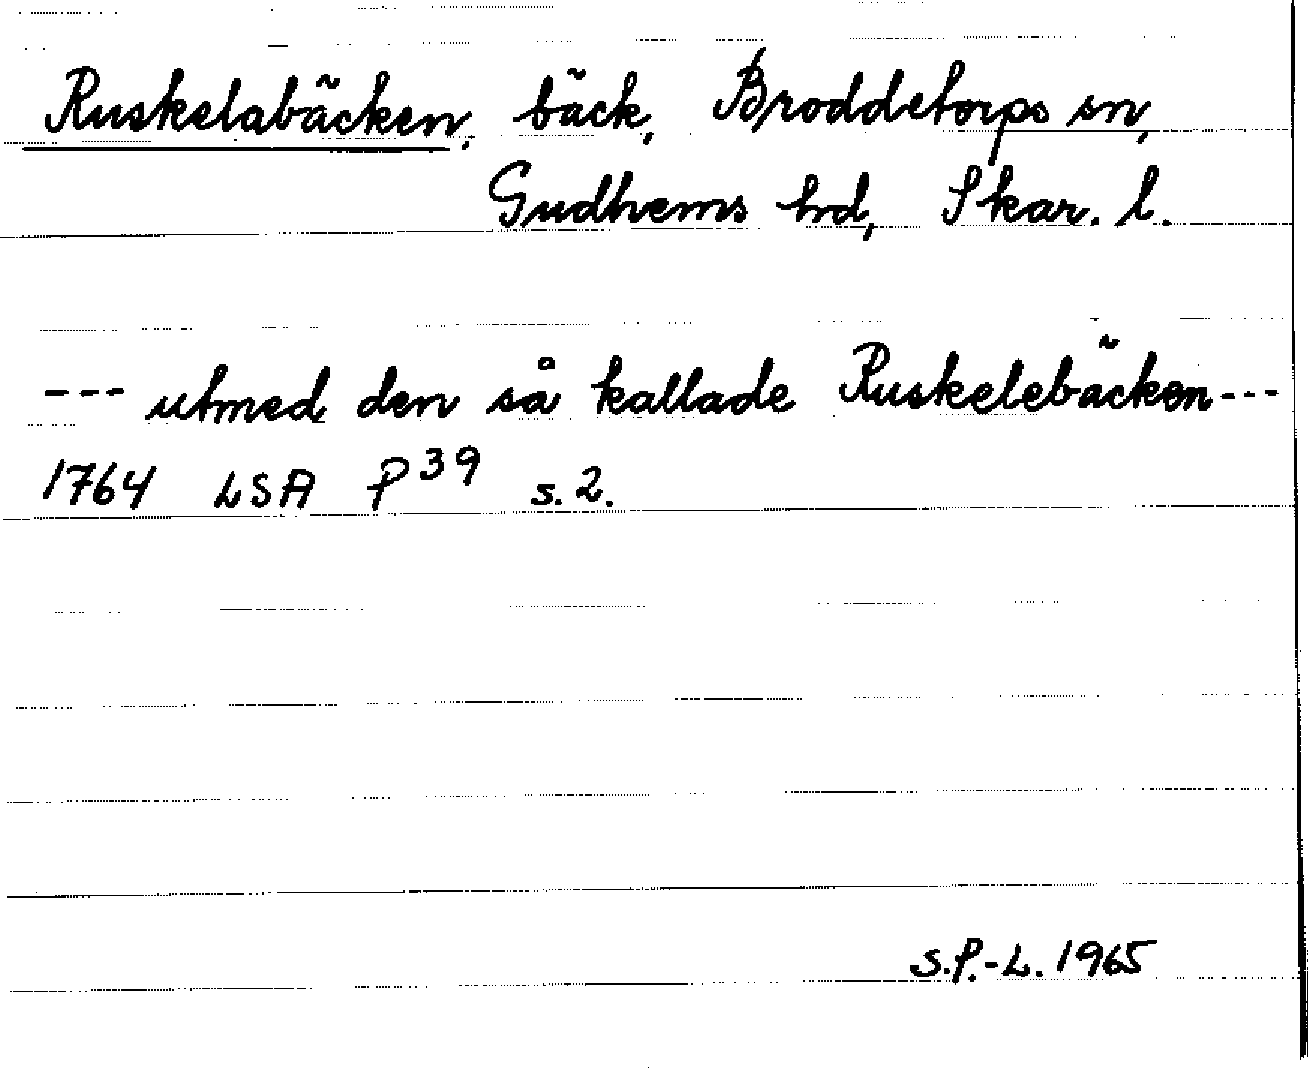 Ruskelabäcken, bäck, Broddetorps sn,
Gudhems hd, Skar. l.
--- utmed den så kallade Ruskelebäcken ---
1764 LSA P 39 s. 2.
S.P.-L. 1965